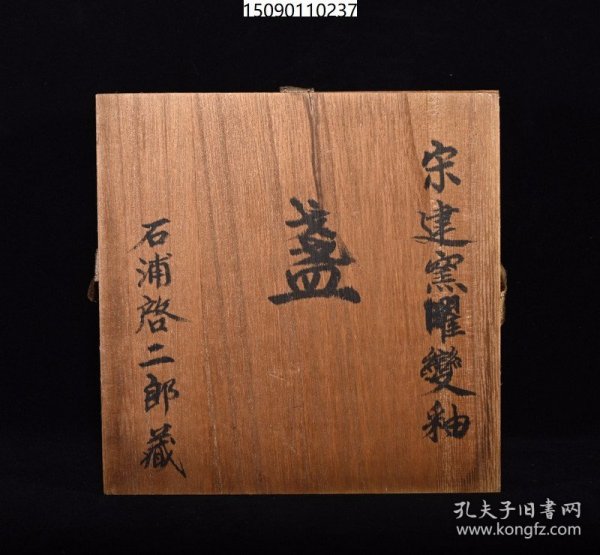 15090110237
宋建窯曜變釉
盏
石浦啓二郎藏
孔夫子旧书网
www.kongfz.com